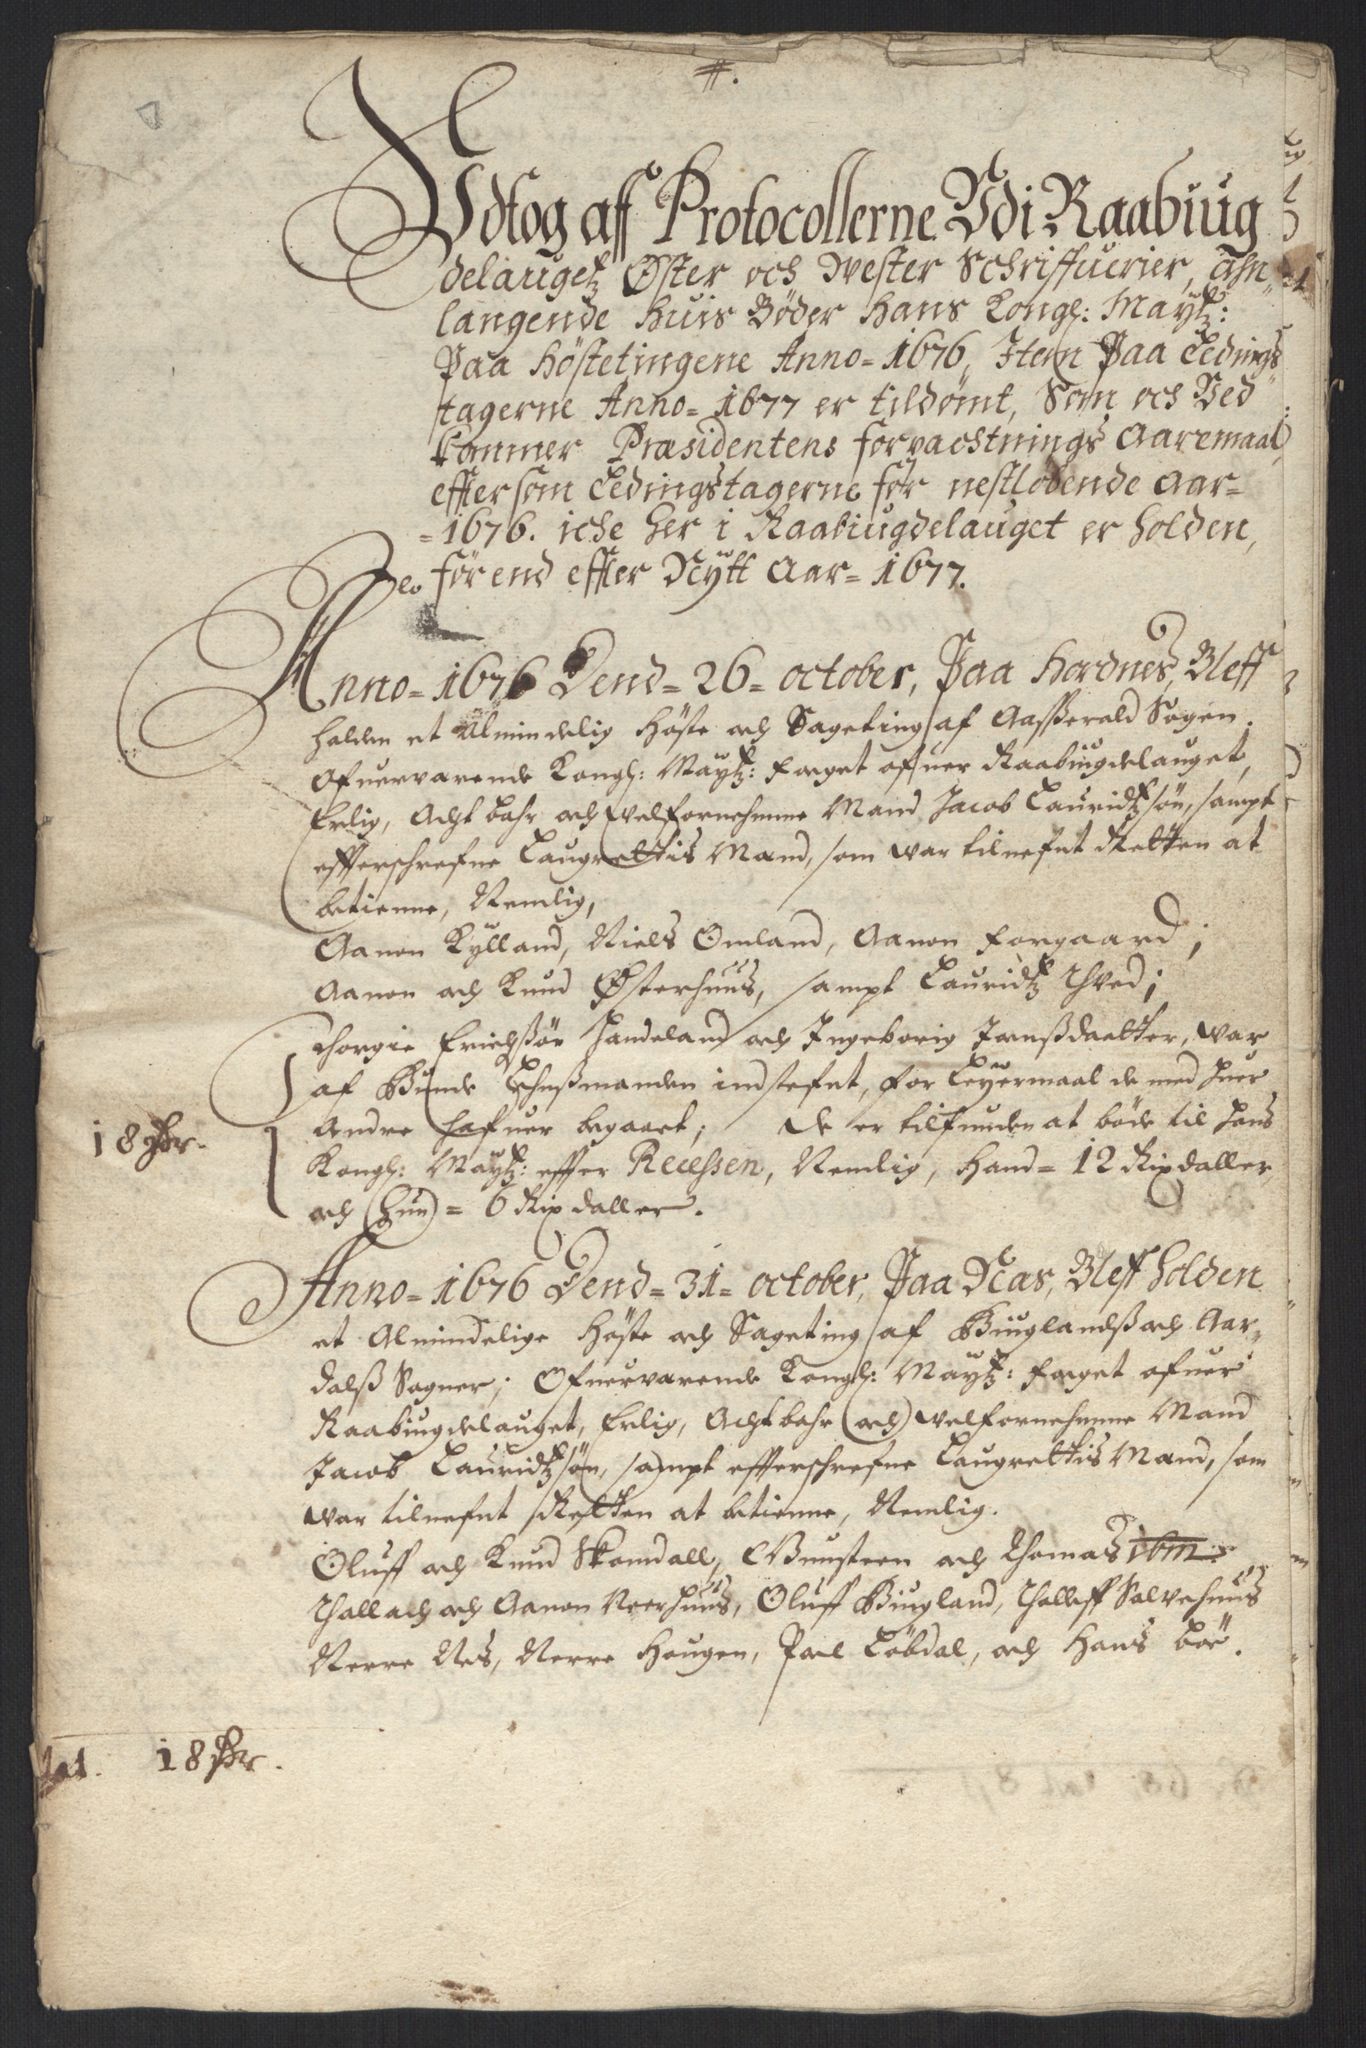 #.
Udtog aff Protocollerne Udi Raabiug
delaugetz Øster och Wester Schriffuerier, ahn¬
langende huis Böder Hans Kongl: Maytz:
Paa Höstetingene Anno= 1676, Item Paa Ledings
tagerne Anno= 1677 er tildömt, Som och Ved
kommer Præsidentens forpachtnings Aaremaal,
effter som Ledingstagerne for nestlobende Aar=
=1676. iche her i Raabiugdelauget er holden,
förend effter Nÿtt Aar= 1677.
Anno= 1676 Dend= 26= october, Paa Hordnes, Bleff
holden et Almindelig Höste och Sageting af Aasserald Sogen.
Ofueruarende Kongl: Maÿtz: Foeget ofuer Raabiugdelauget,
Erlig, Acht bahr och velfornehmme Mand Jacob Lauridtzsön, sampt
effterschrefne Laugrettis Mand, som war tilnefnt Retten at
betienne, Nemlig,
Aanon Kÿlland, Niels Omland, Aanon Forgaard;
Aanon och Knud Østerhuus, sampt Lauridtz Thved;
Thorgie Erichssön Handeland och Ingeborig Jonssdaetter, war
af Bunde Lehnssmanden indstefnt, for Leÿermaal de med huer
Andre hafuer begaaet; De er tilfunden at böde til Hans
18 Rdr. Kongl: Maÿtz: effter Recessen, Nemlig, Hand= 12 Rixdaller
och Hun= 6 Rixdaller.
Anno= 1676 Dend= 31= october, Paa Neas, Bleff holden
et Almindelige Höste och Sageting af Biuglandss och Aar¬
dalss Sogner; Ofueruarende Kongl: Maÿtz: Foeget ofuer
Raabiugdelauget, Erlig, Achtbahr och velfornehmme Mand
Jacob Lauridtzsön, sampt effterschrefne Laugrettis Mand, som
war tilnefnt Retten at betienne, Nemlig.
Oluff och Knud Skomdall, Gunsteen och Thomas ibm
Thallach och Aanon Neerhuus, Oluff Biugland, Thalleff Salvehuus
Nerre Nes, Nerre Hougen, Poel Löbdal, och Hans Böe.
Lat. 18 Rdr.